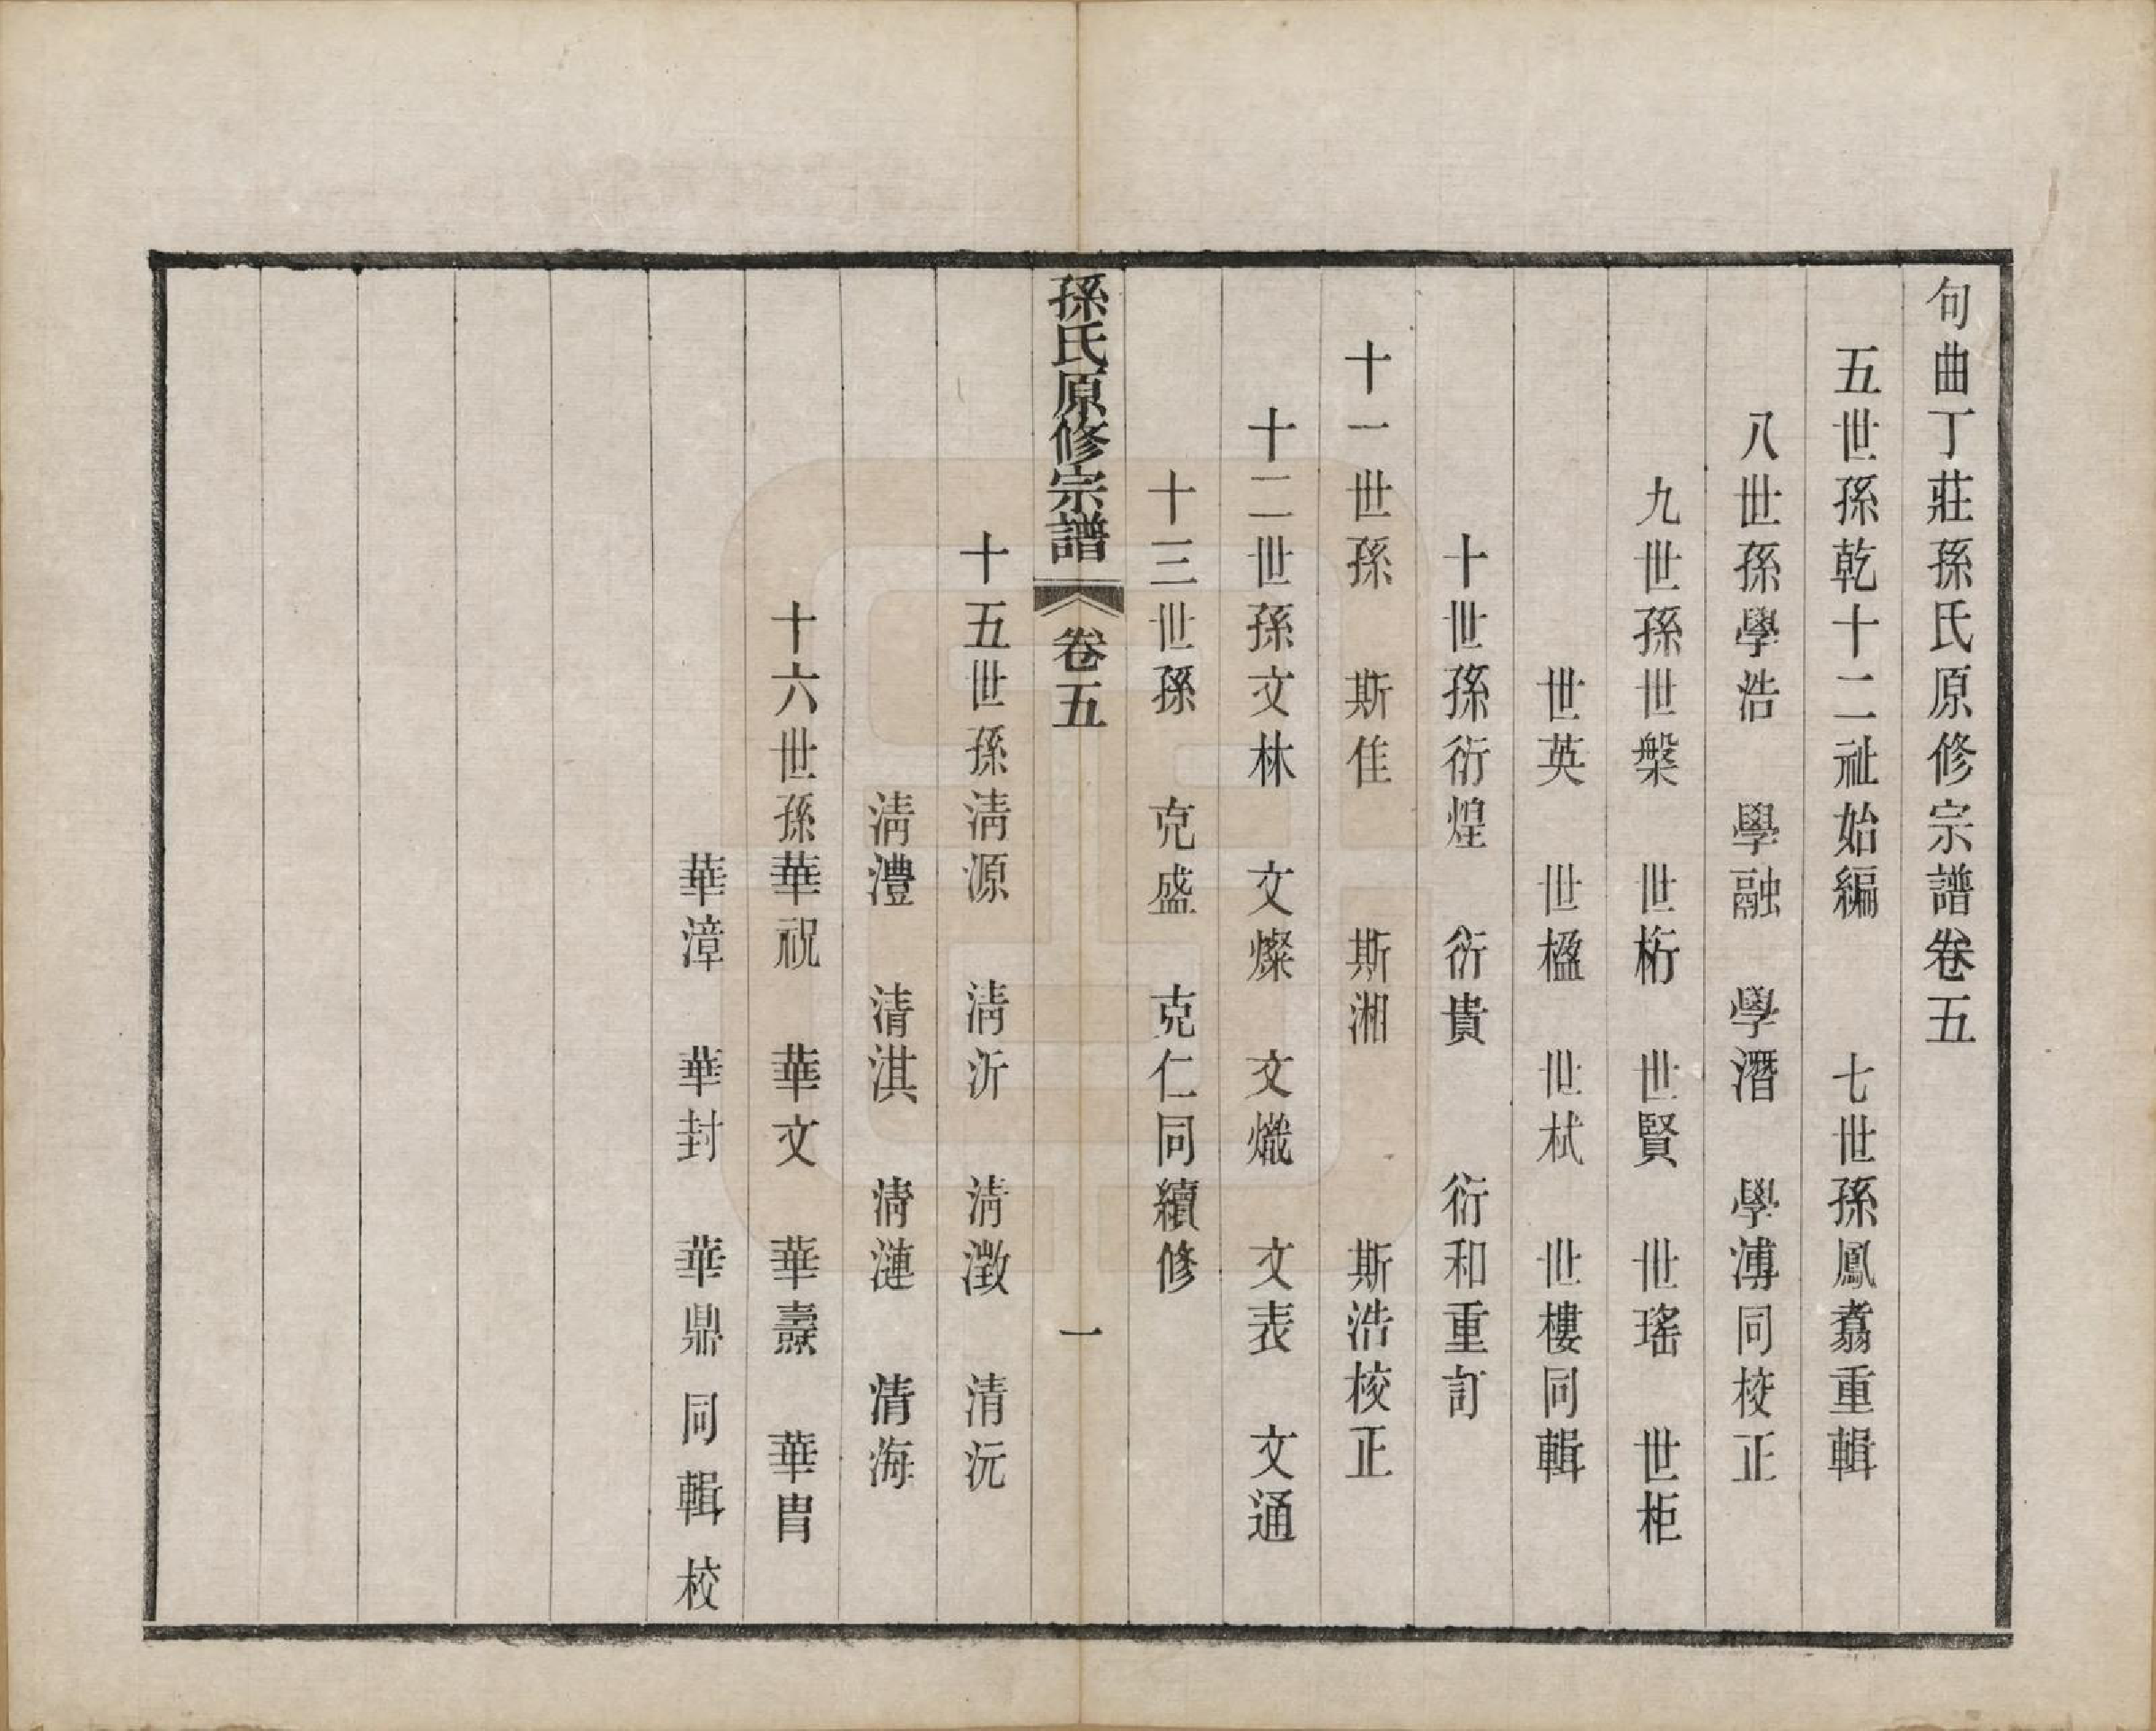 句曲丁莊孫氏原修宗譜卷五
五世孫乾十二祉始編　七世孫鳳翥重輯
八世孫學浩　學融　學潛　學溥同校正
九世孫世槃　世桁　世賢　世瑤　世柜
世英　世楹　世栻　世樓同輯
十世孫衍煌　衍貴　衍和重訂
十一世孫　斯佳　斯湘　斯浩校正
十二世孫文林　文燦　文熾　文表　文通
十三世孫　克盛　克仁同續修
孫氏原修宗譜　卷五　一
十五世孫淸源　淸沂　淸澂　清沅
淸灃　清淇　淸漣　清海
十六世孫華祝　華文　華壽　華胄
華漳　華封　華鼎同輯校